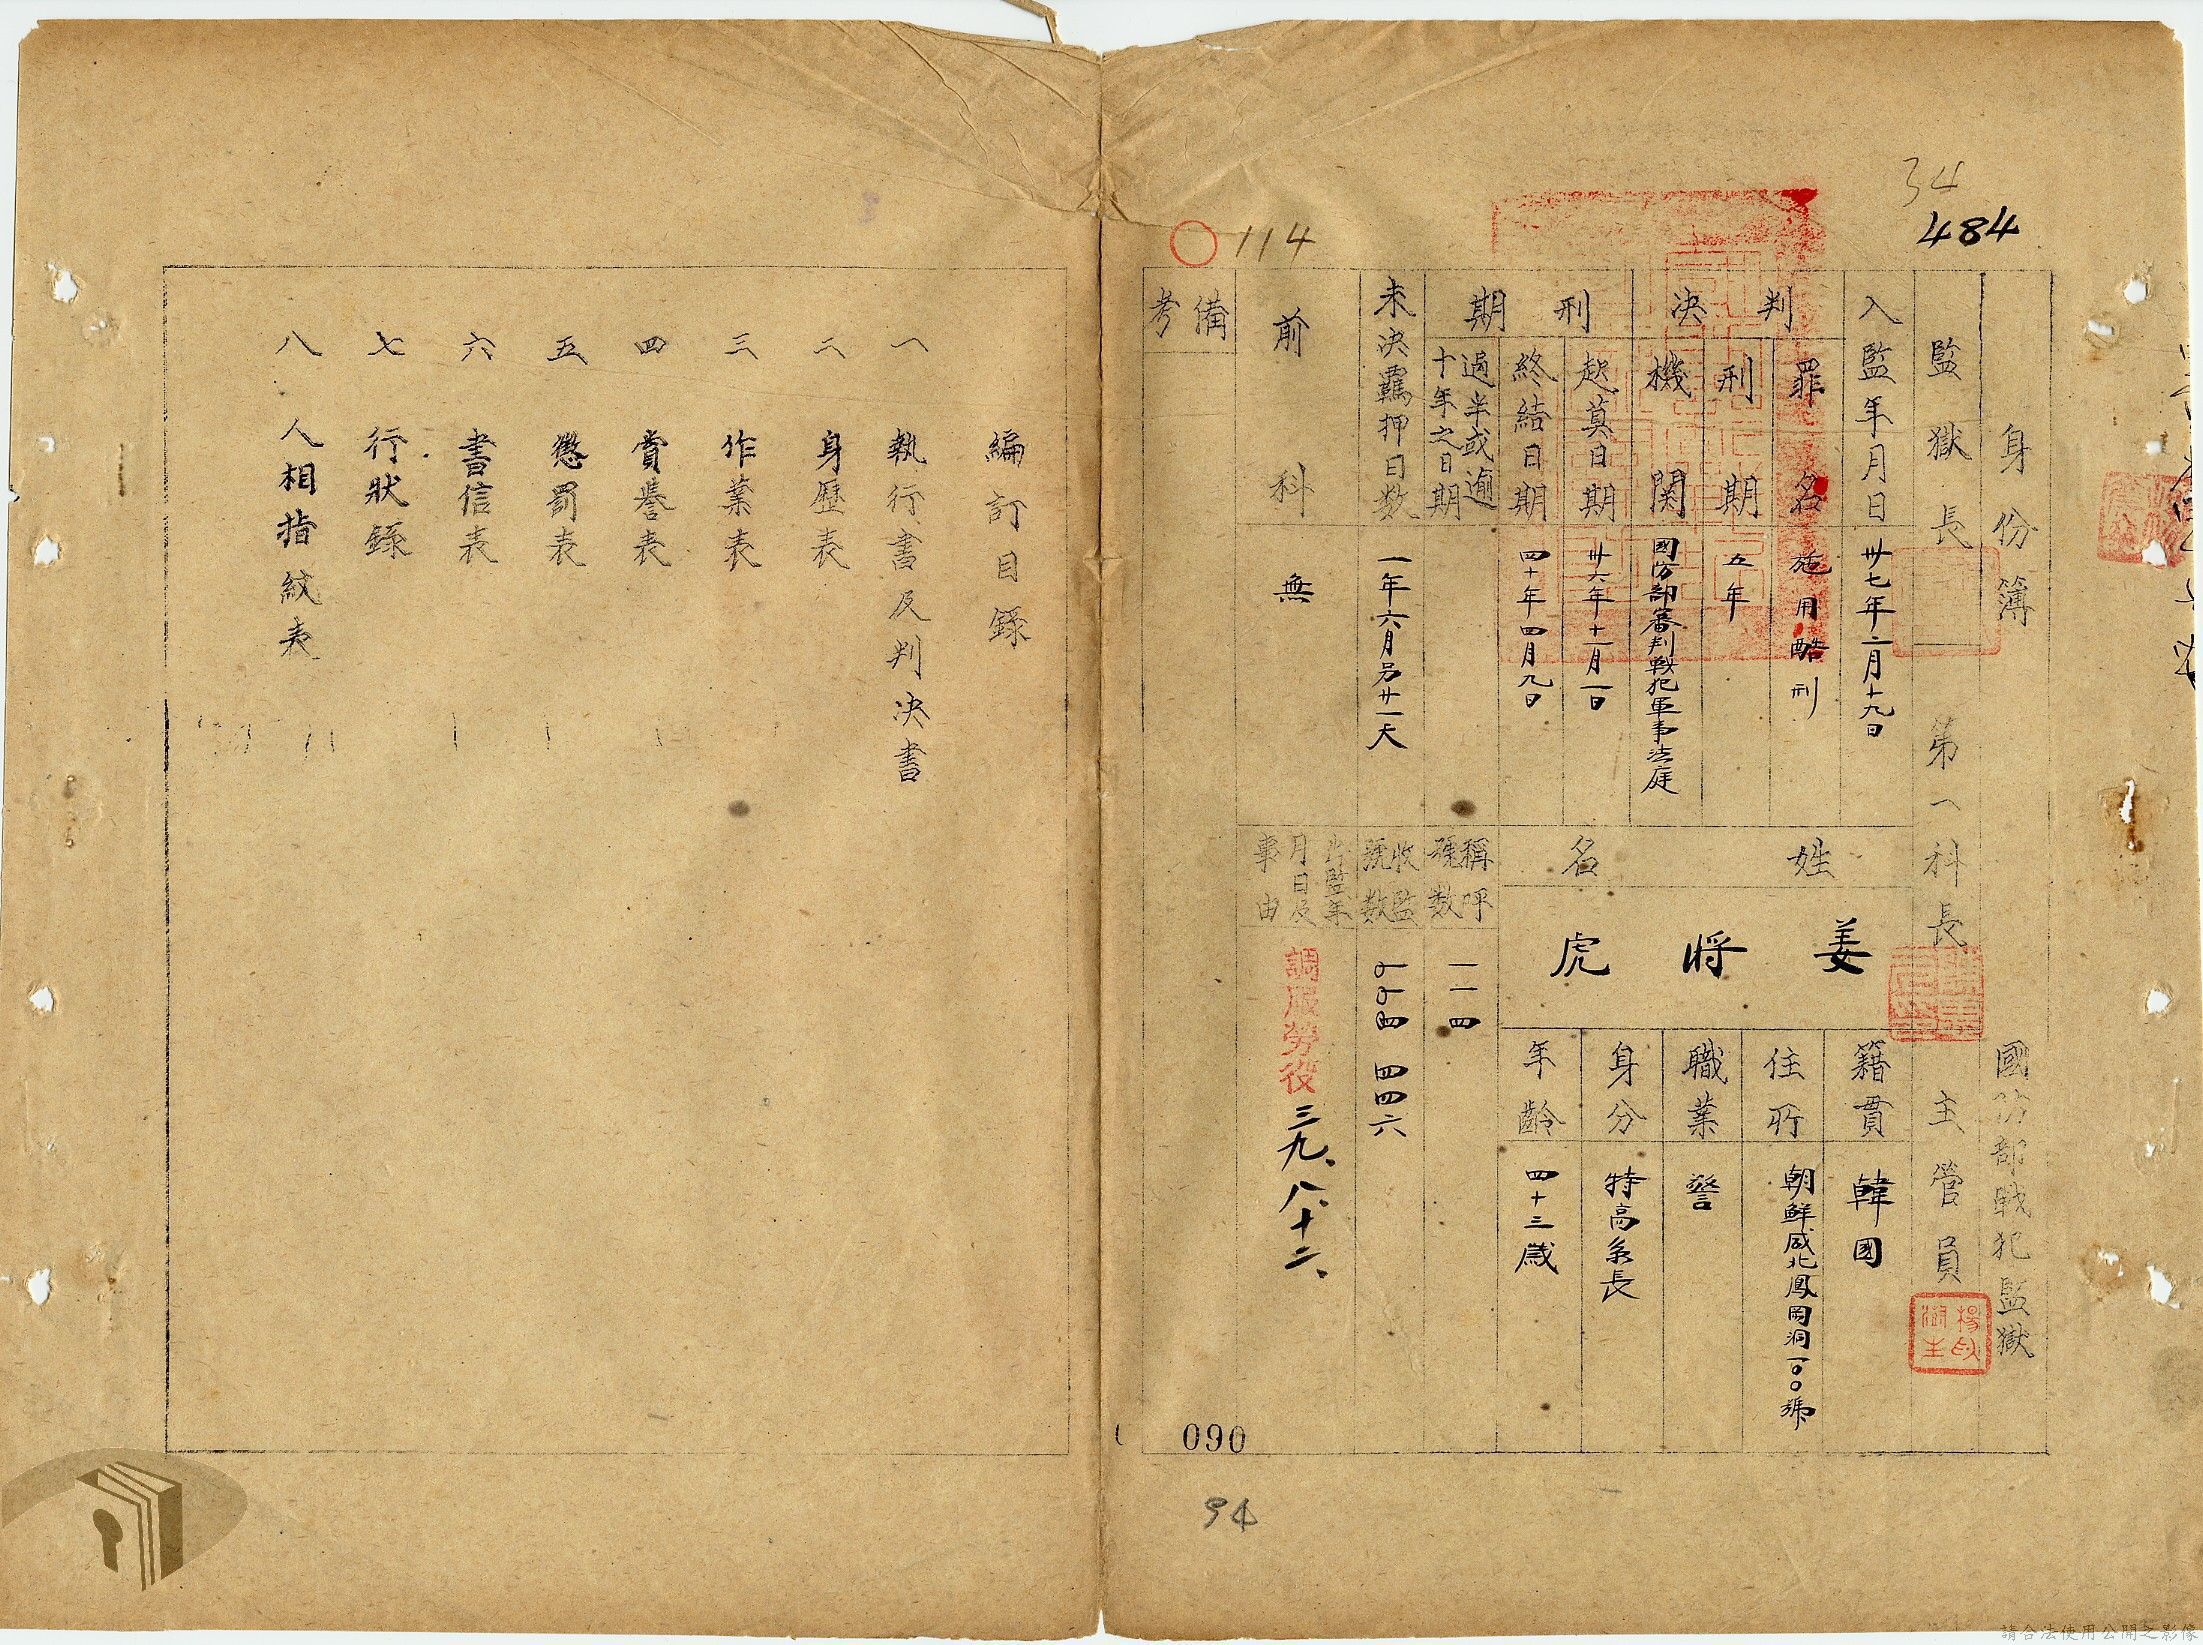 34
484
114
身份簿 國防部戰犯監獄
監獄長 第一科長 主管員
入監年月日 卅七年二月十九日
判決 刑期
罪名 施用酷刑
刑期 五年
機関 國防部審判戰犯軍事法庭
起算日期 卅六年十一月一日
終結日期 四十年四月九日
過半或逾十年之日期
未決羈押日数 一年六月另廿一天
前科 無
備考
姓名 姜將虎
籍貫 韓國
住所 朝鮮咸北鳳岡洞一〇〇號
職業 警
身分 特高系長
年齡 四十三歲
稱呼號数 一一四
收監號数
四四六
出監年月日及事由 調服勞役 三九、八、十二、
090
94
編訂目錄
一 執行書及判決書
二 身歷表
三 作業表
四 賞譽表
五 懲罰表
六 書信表
七 行狀錄
八 人相指紋表
請合法使用公開之影像